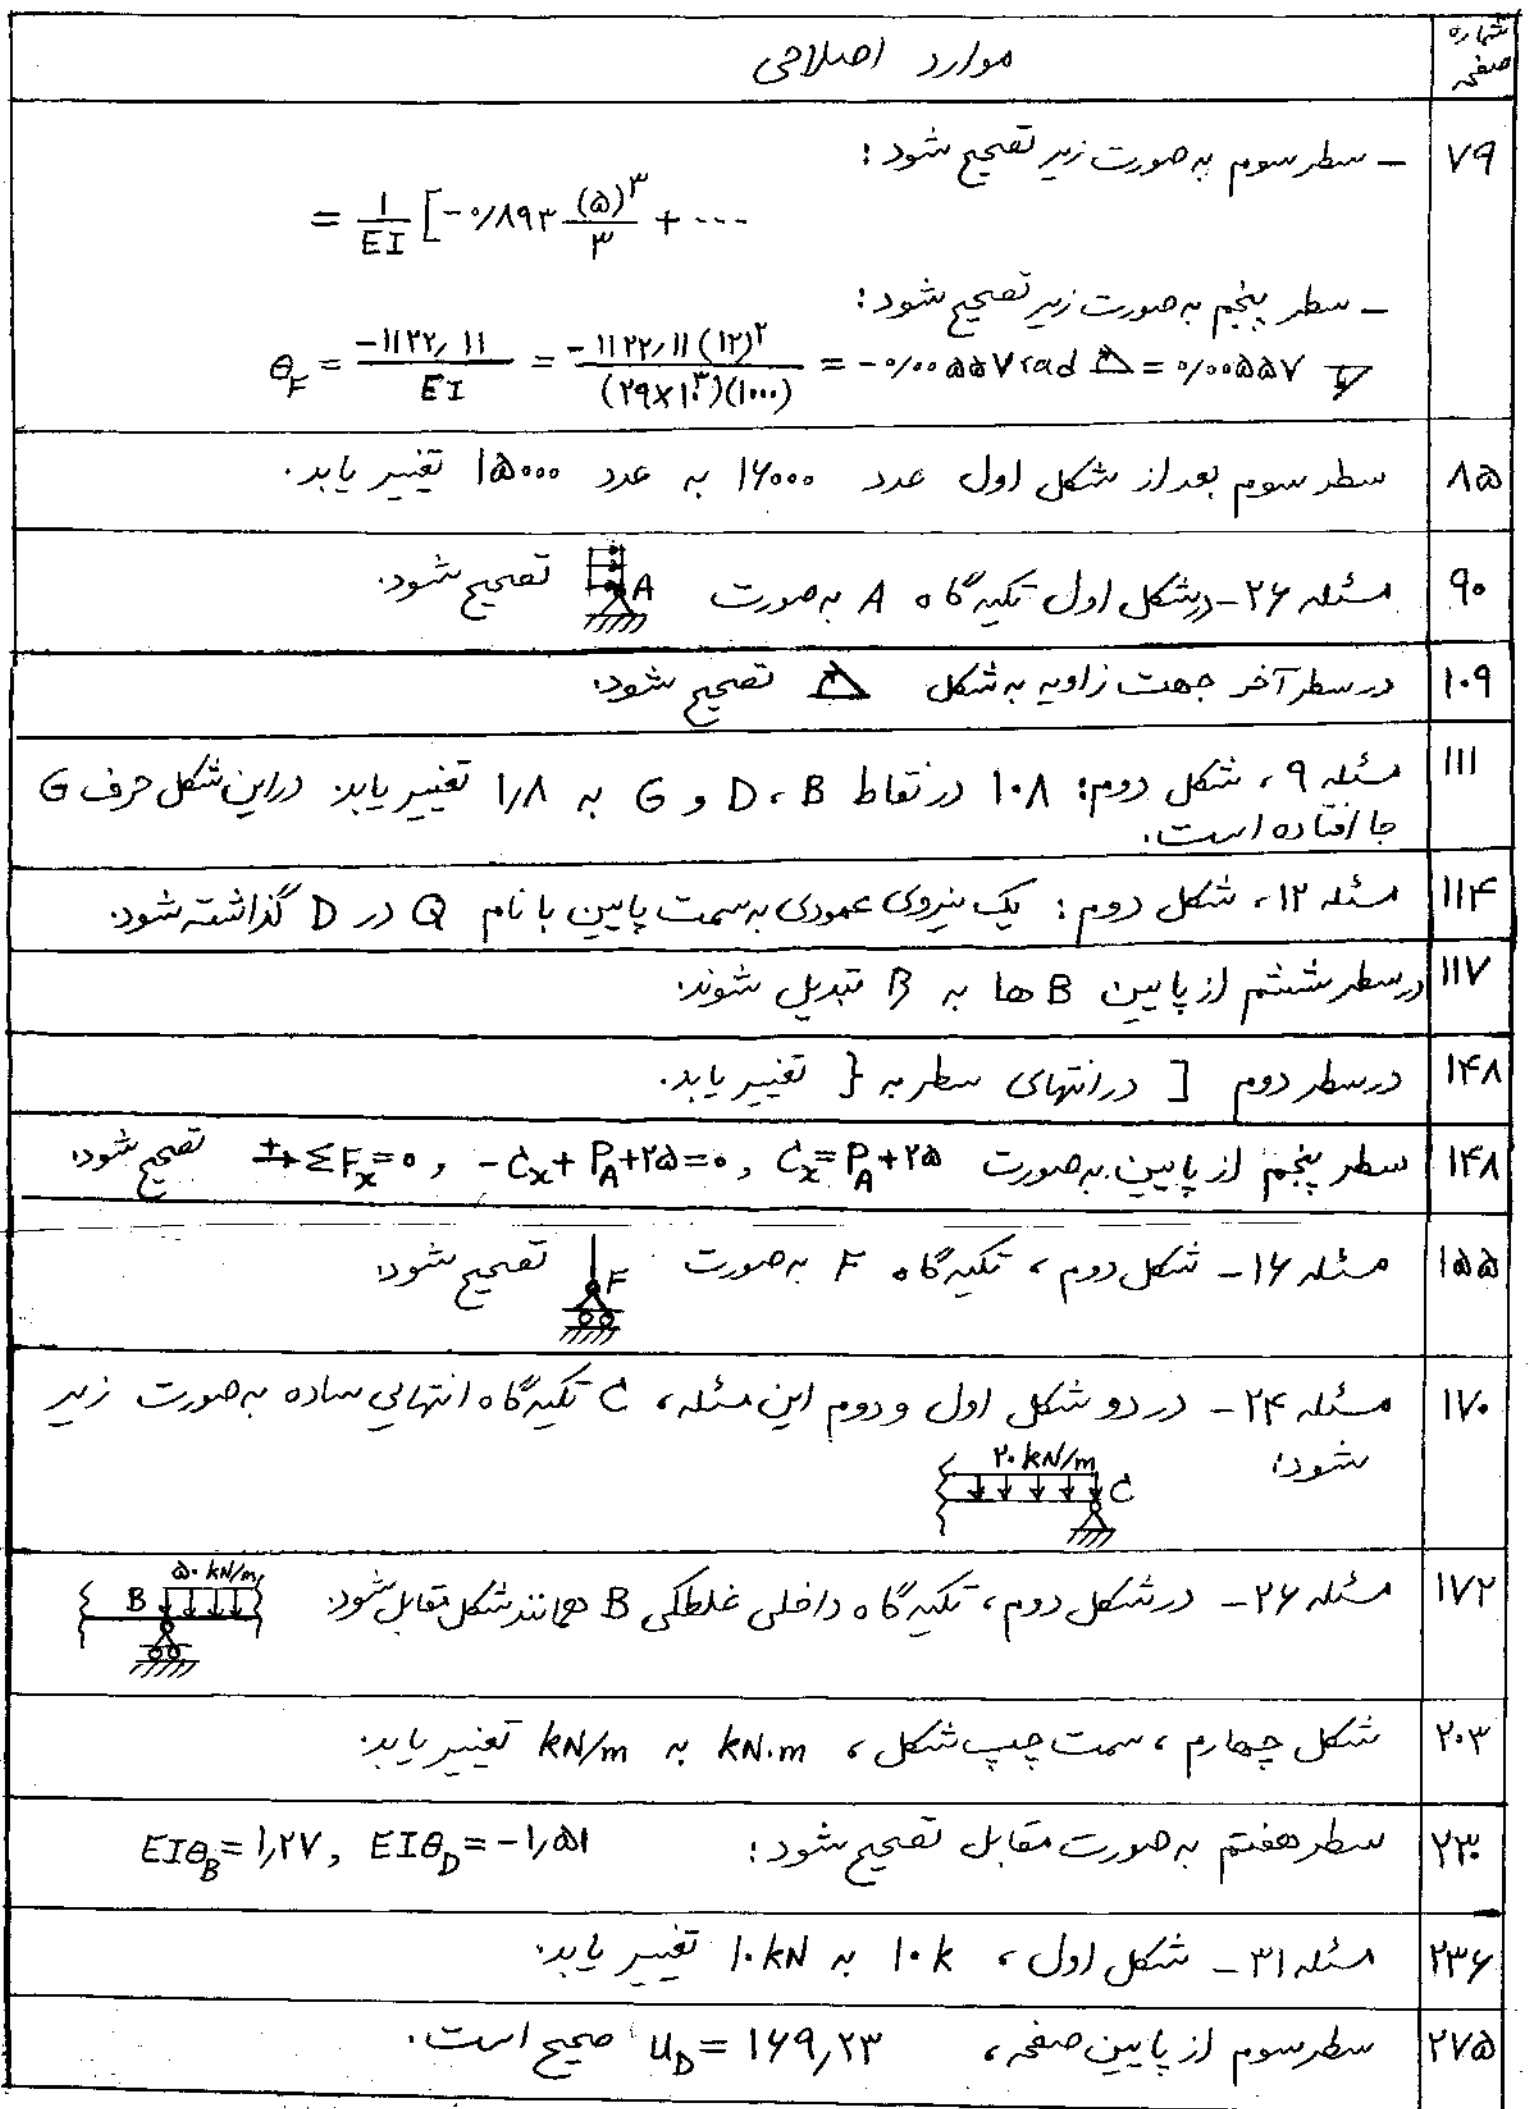 شماره صفحه
موارد اصلاحی
۷۹ – سطر سوم به صورت زیر تصحیح شود:
= ۱/EI [-۰/۸۹۳ (۵)^۳/۳ + ...
– سطر پنجم به صورت زیر تصحیح شود:
θ_F = -۱۱۲۲٫۱۱/EI = -۱۱۲۲٫۱۱(۱۲)^۲/(۲۹×۱۰^۳)(۱۰۰۰) = -۰/۰۰۵۵۷ rad = ۰/۰۰۵۵۷
۸۵ سطر سوم بعد از شکل اول عدد ۱۶۰۰۰ به عدد ۱۵۰۰۰ تغییر یابد.
۹۰ مسئله ۲۶- در شکل اول تکیه‌گاه A به صورت A تصحیح شود.
۱۰۹ در سطر آخر جهت زاویه به شکل تصحیح شود.
۱۱۱ مسئله ۹، شکل دوم: ۱۰۸ در نقاط B، D و G به ۱٫۸ تغییر یابد. در این شکل حرف G
جا افتاده است.
۱۱۴ مسئله ۱۲، شکل دوم: یک نیروی عمودی به سمت پایین با نام Q در D گذاشته شود.
۱۱۷ در سطر ششم از پایین B ها به β تبدیل شوند.
۱۴۸ در سطر دوم [ در انتهای سطر به { تغییر یابد.
۱۴۸ سطر پنجم از پایین به صورت +→ ΣF_x=۰ , -C_x+P_A+۲۵=۰ , C_x=P_A+۲۵ تصحیح شود.
۱۵۵ مسئله ۱۶- شکل دوم، تکیه‌گاه F به صورت F تصحیح شود.
۱۷۰ مسئله ۲۴- در دو شکل اول و دوم این مسئله، C تکیه‌گاه انتهایی ساده به صورت زیر
شود:
۲۰ kN/m
C
۱۷۲ مسئله ۲۶- در شکل دوم، تکیه‌گاه داخلی غلطکی B همانند شکل مقابل شود:
B ۵۰ kN/m
۲۰۳ شکل چهارم، سمت چپ شکل، kN.m به kN/m تغییر یابد.
۲۳۰ سطر هفتم به صورت مقابل تصحیح شود: EIθ_B=۱٫۲۷, EIθ_D=-۱٫۵۱
۲۳۶ مسئله ۳۱- شکل اول، ۱۰k به ۱۰kN تغییر یابد.
۲۷۵ سطر سوم از پایین صفحه، u_D=۱۶۹٫۲۳ صحیح است.